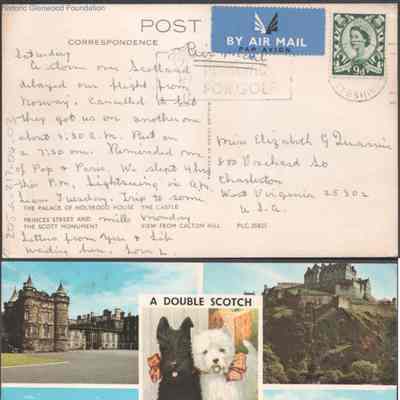 Historic Glenwood Foundation
POST
CORRESPONDENCE
BY AIR MAIL
PAR AVION
9D
FOR GOLF
Saturday
A storm over Scotland
delayed our flight from
Norway. Cancelled it but
they got us on another one
about 9:30 P.M. Put on
a 7:30 one. Reminded me
of Pop & Paris. We slept 4 hrs
this P.M. Sightseeing in A.M.
Tuesday. Trip to some
mills Monday
Letters from you & Lib
waiting here. Love
Miss Elizabeth G
800 Orchard St
Charleston
West Virginia 25302
U.S.A.
THE PALACE OF HOLYROOD HOUSE THE CASTLE
PRINCES STREET AND
THE SCOTT MONUMENT VIEW FROM CALTON HILL PLC.20825
A DOUBLE SCOTCH